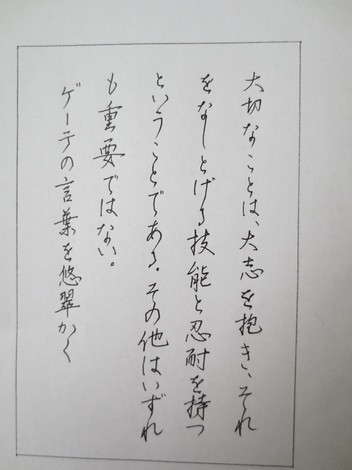 大切なことは、大志を抱き、それ
をなしとげる技能と忍耐を持つ
ということである。その他はいずれ
も重要ではない。
ゲーテの言葉を悠翠かく